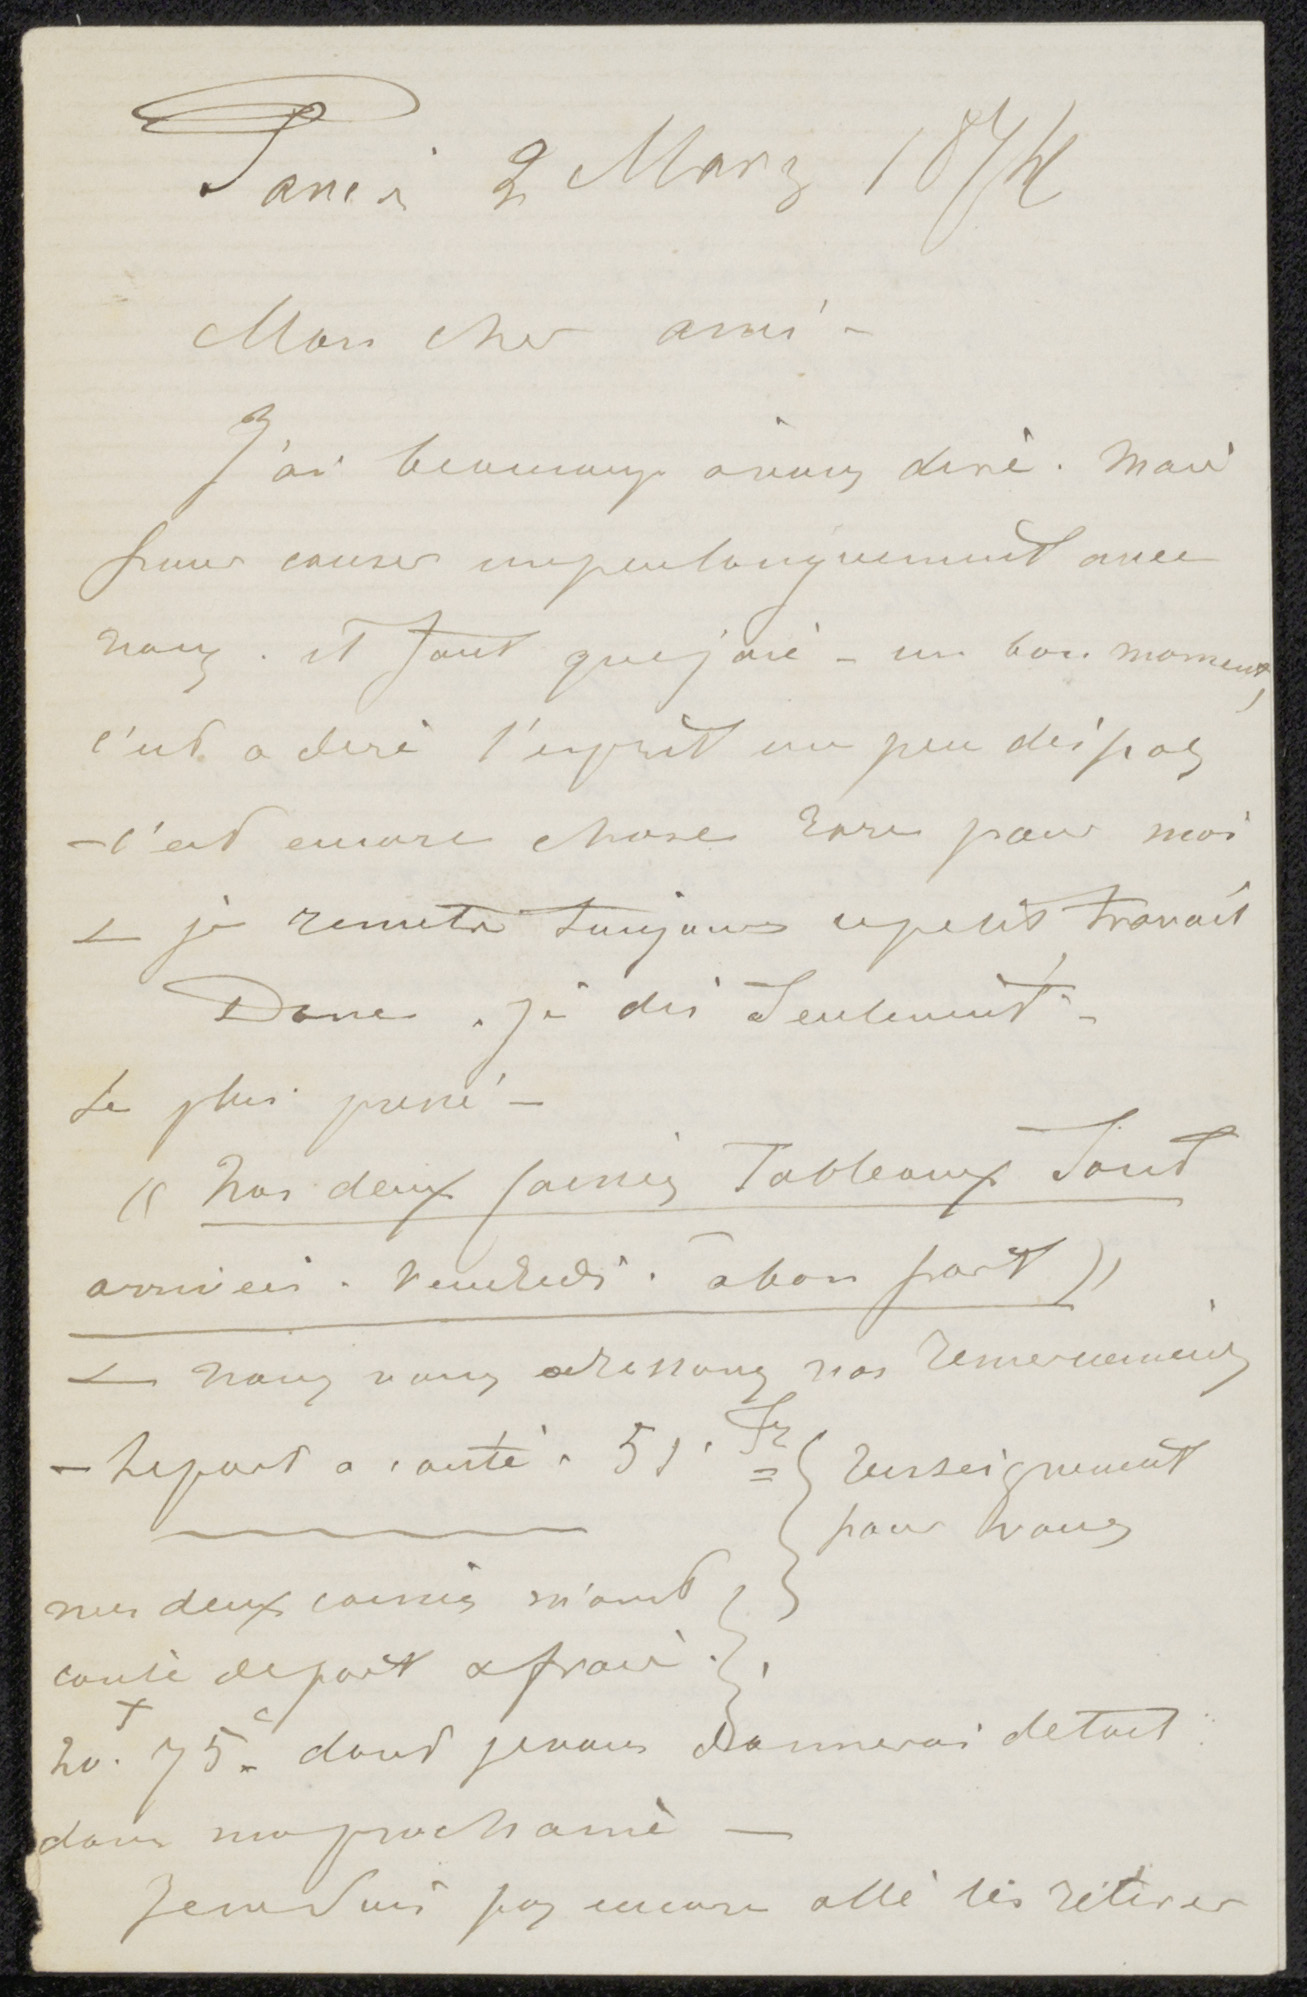 Paris 2 Mars 1874
Mon cher ami -
J'ai beaucoup à vous dire. mais
pour causer un peu longuement avec
vous. il faut que j'aie - un bon moment,
c'est a dire l'esprit un peu dispos
- c'est encore chose rare pour moi
& je remets toujours ce petit travail
Donc. je dis Seulement -
Le plus pressé -
« Vos deux caisses Tableaux Sont
arrivées. Vendredi. à bon port »
& nous vous adressons nos remerciements
- Le port a couté. 51. Fr
renseignement
pour vous
mes deux caisses m'ont
couté de port & frais.
20.f 75.c dont je vous donnerai detail
dans ma prochaine -
Je ne Suis pas encore allé les rétirer